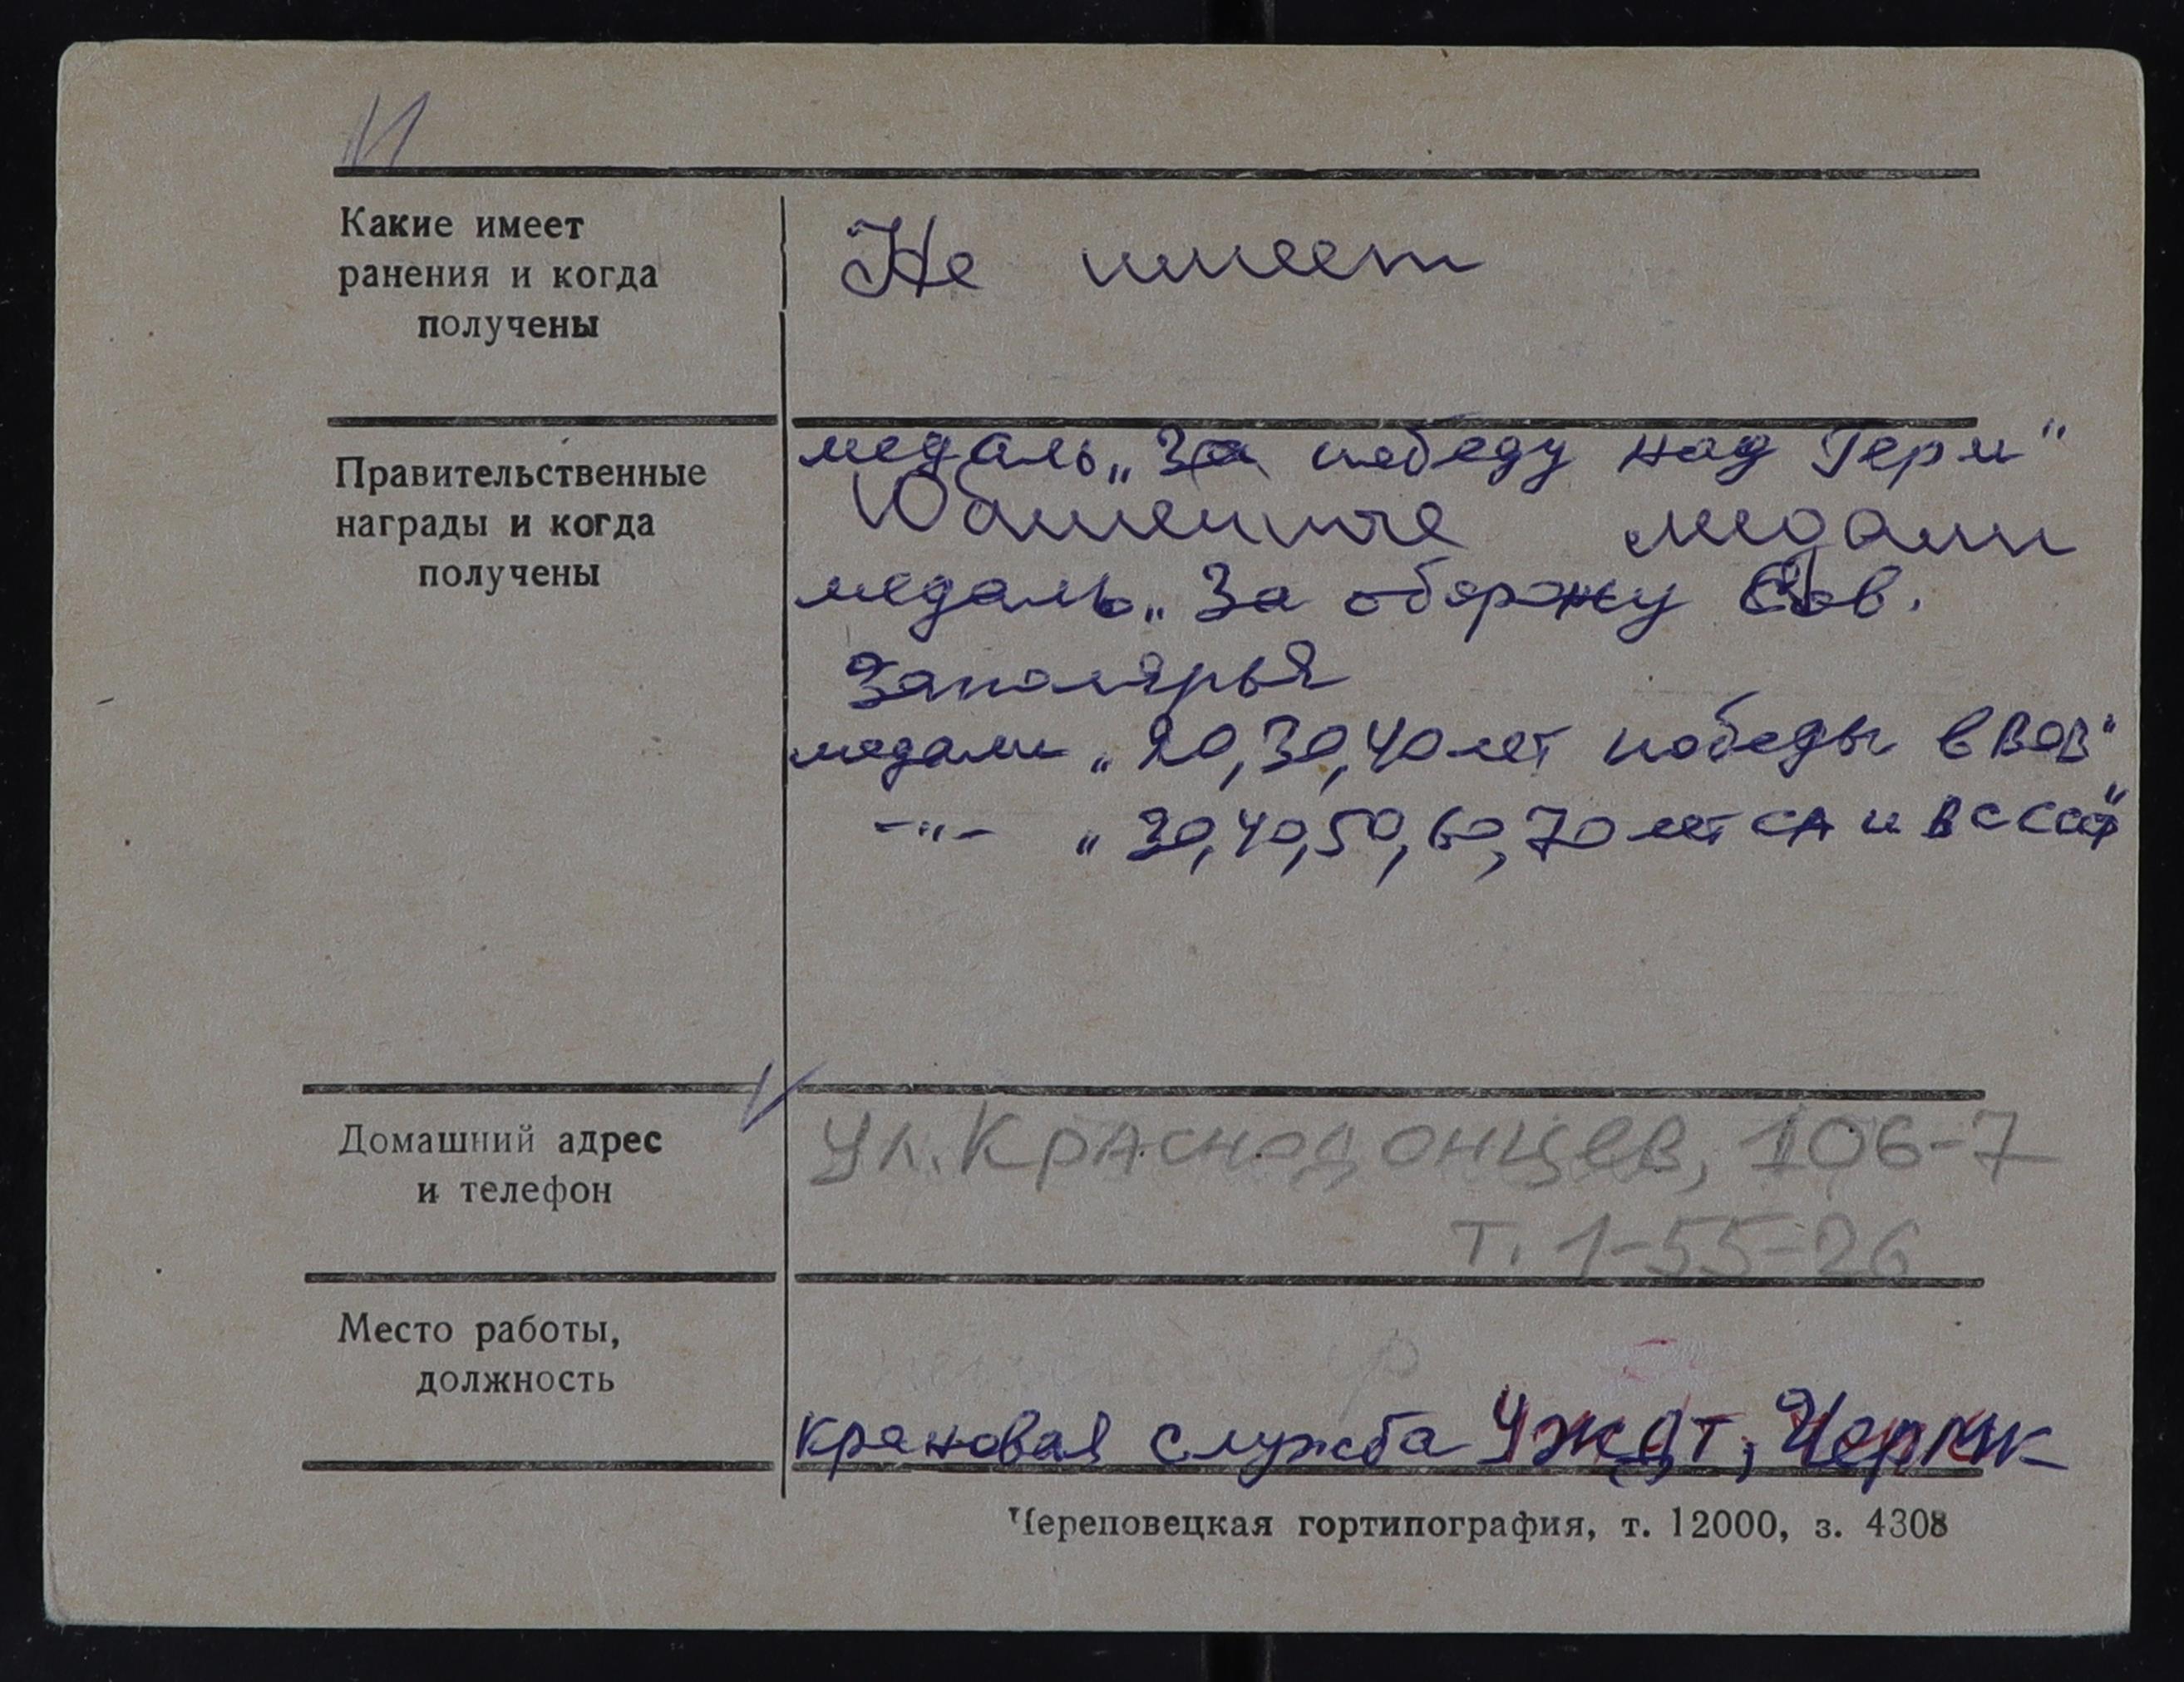 Какие имеет
ранения и когда
получены
Не имеет
Правительственные
награды и когда
получены
медаль „За победу над Герм"
Юбилейные медали
медаль „За оборону Сов.
Заполярья
медали „20,30,40 лет победы в ВОВ"
-"- „30,40,50,60,70 лет СА и ВС СССР"
Домашний адрес
и телефон
ул. Краснодонцев, 106-7
т. 1-55-26
Место работы,
должность
крановая служба УЖДТ, ЧерМК
Череповецкая гортипография, т. 12000, з. 4308